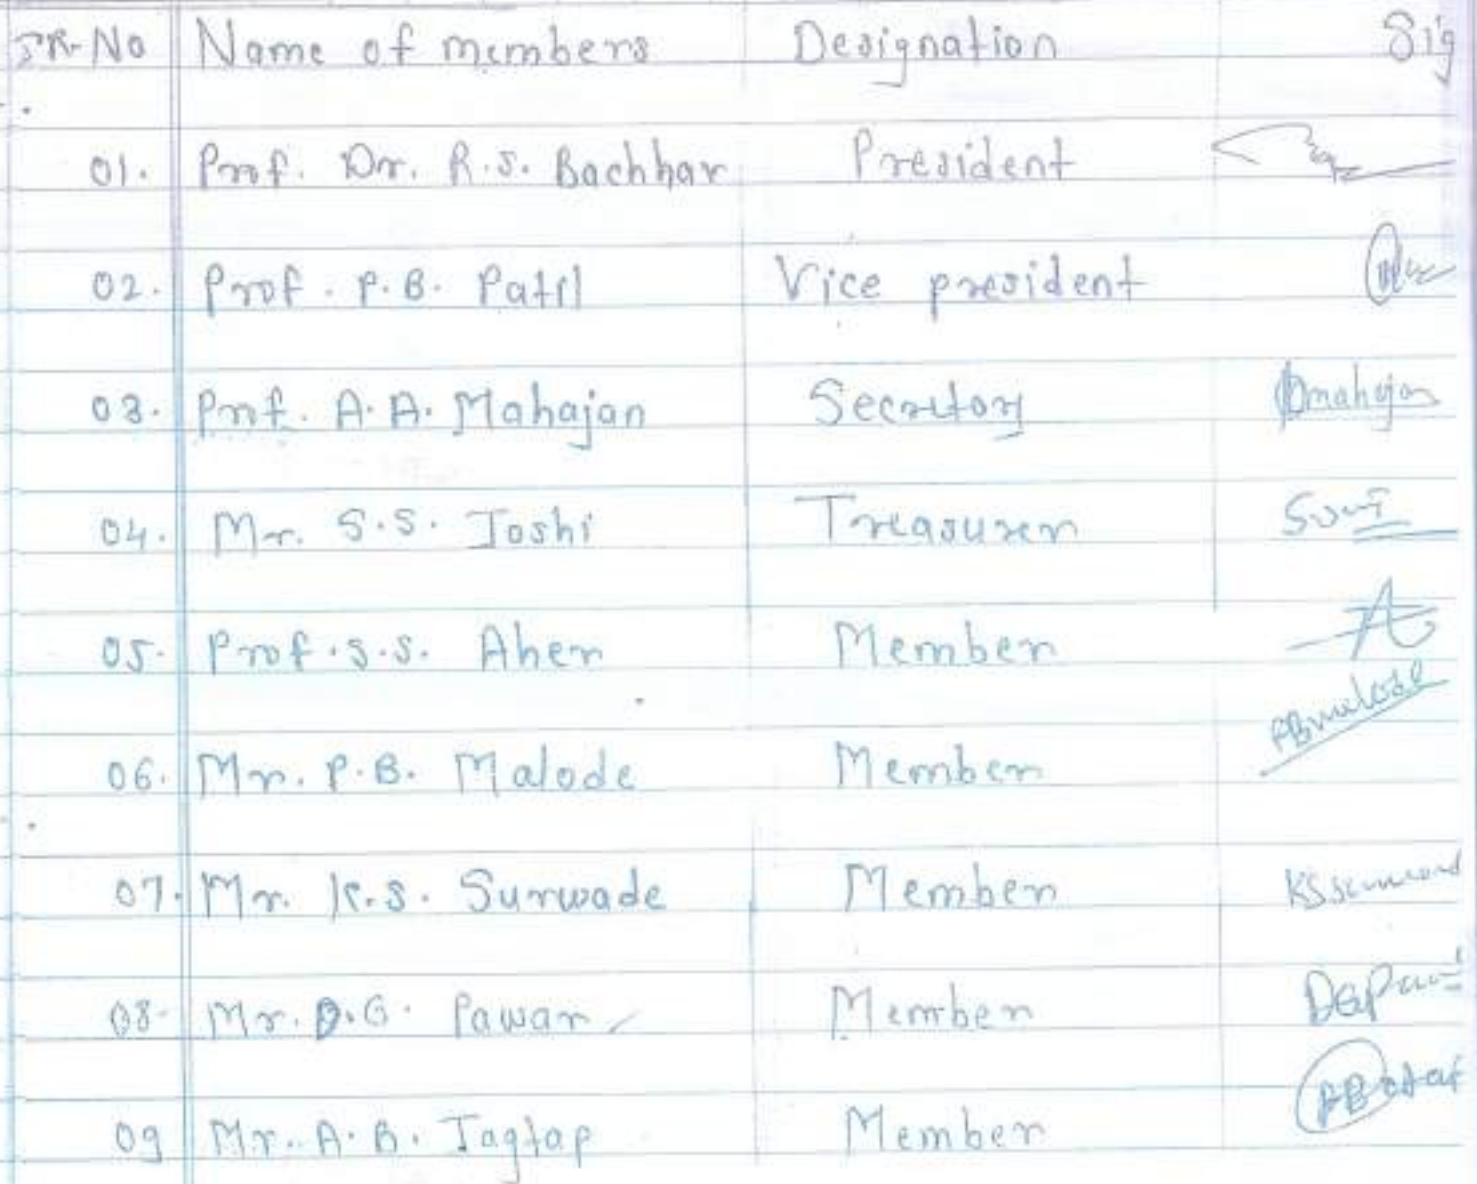 SR-No Name of members Designation Sig
01. Prof. Dr. R.S. Bachhav President
02. Prof. P.B. Patil Vice president
03. Prof. A.A. Mahajan Secretory
04. Mr. S.S. Joshi Treasurer
05. Prof. S.S. Aher Member
06. Mr. P.B. Malode Member PBmalode
07. Mr. K.S. Surwade Member
08. Mr. D.G. Pawar Member
09 Mr. A.B. Jagtap Member